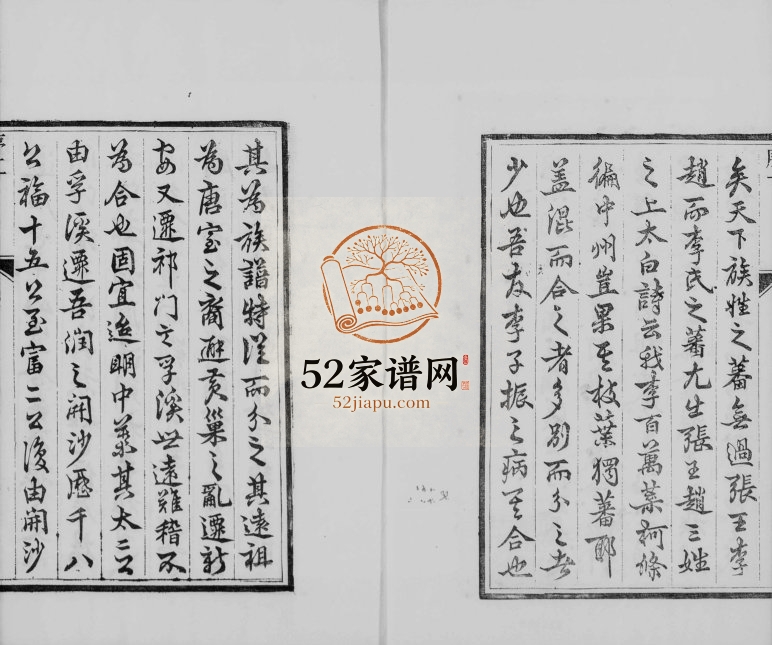 矣天下族姓之蕃無過張王李
趙而李氏之蕃尤在張王趙三姓
之上太白詩云我李百萬葉柯條
徧中州豈果其枝葉獨蕃耶
蓋混而合之者多別而分之者
少也吾友李子振之病其合也
其為族譜特從而分之其遠祖
為唐室之裔避黃巢之亂遷新
安又遷祁門之孚溪世遠難稽不
為合也固宜迨明中葉其太二公
由孚溪遷吾潤之開沙歷千八
公福十五公至富二公復由開沙
52家谱网
52jiapu.com